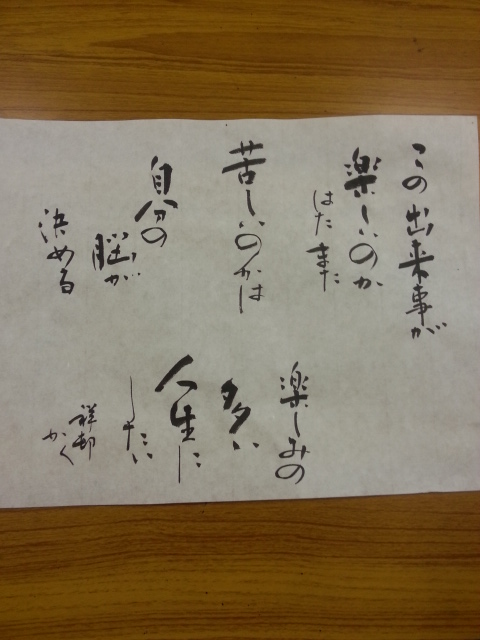 この出来事が
楽しいのか
はたまた
苦しいのかは
自分の
脳が
決める
楽しみの
多い
人生に
したい
祥邨
かく